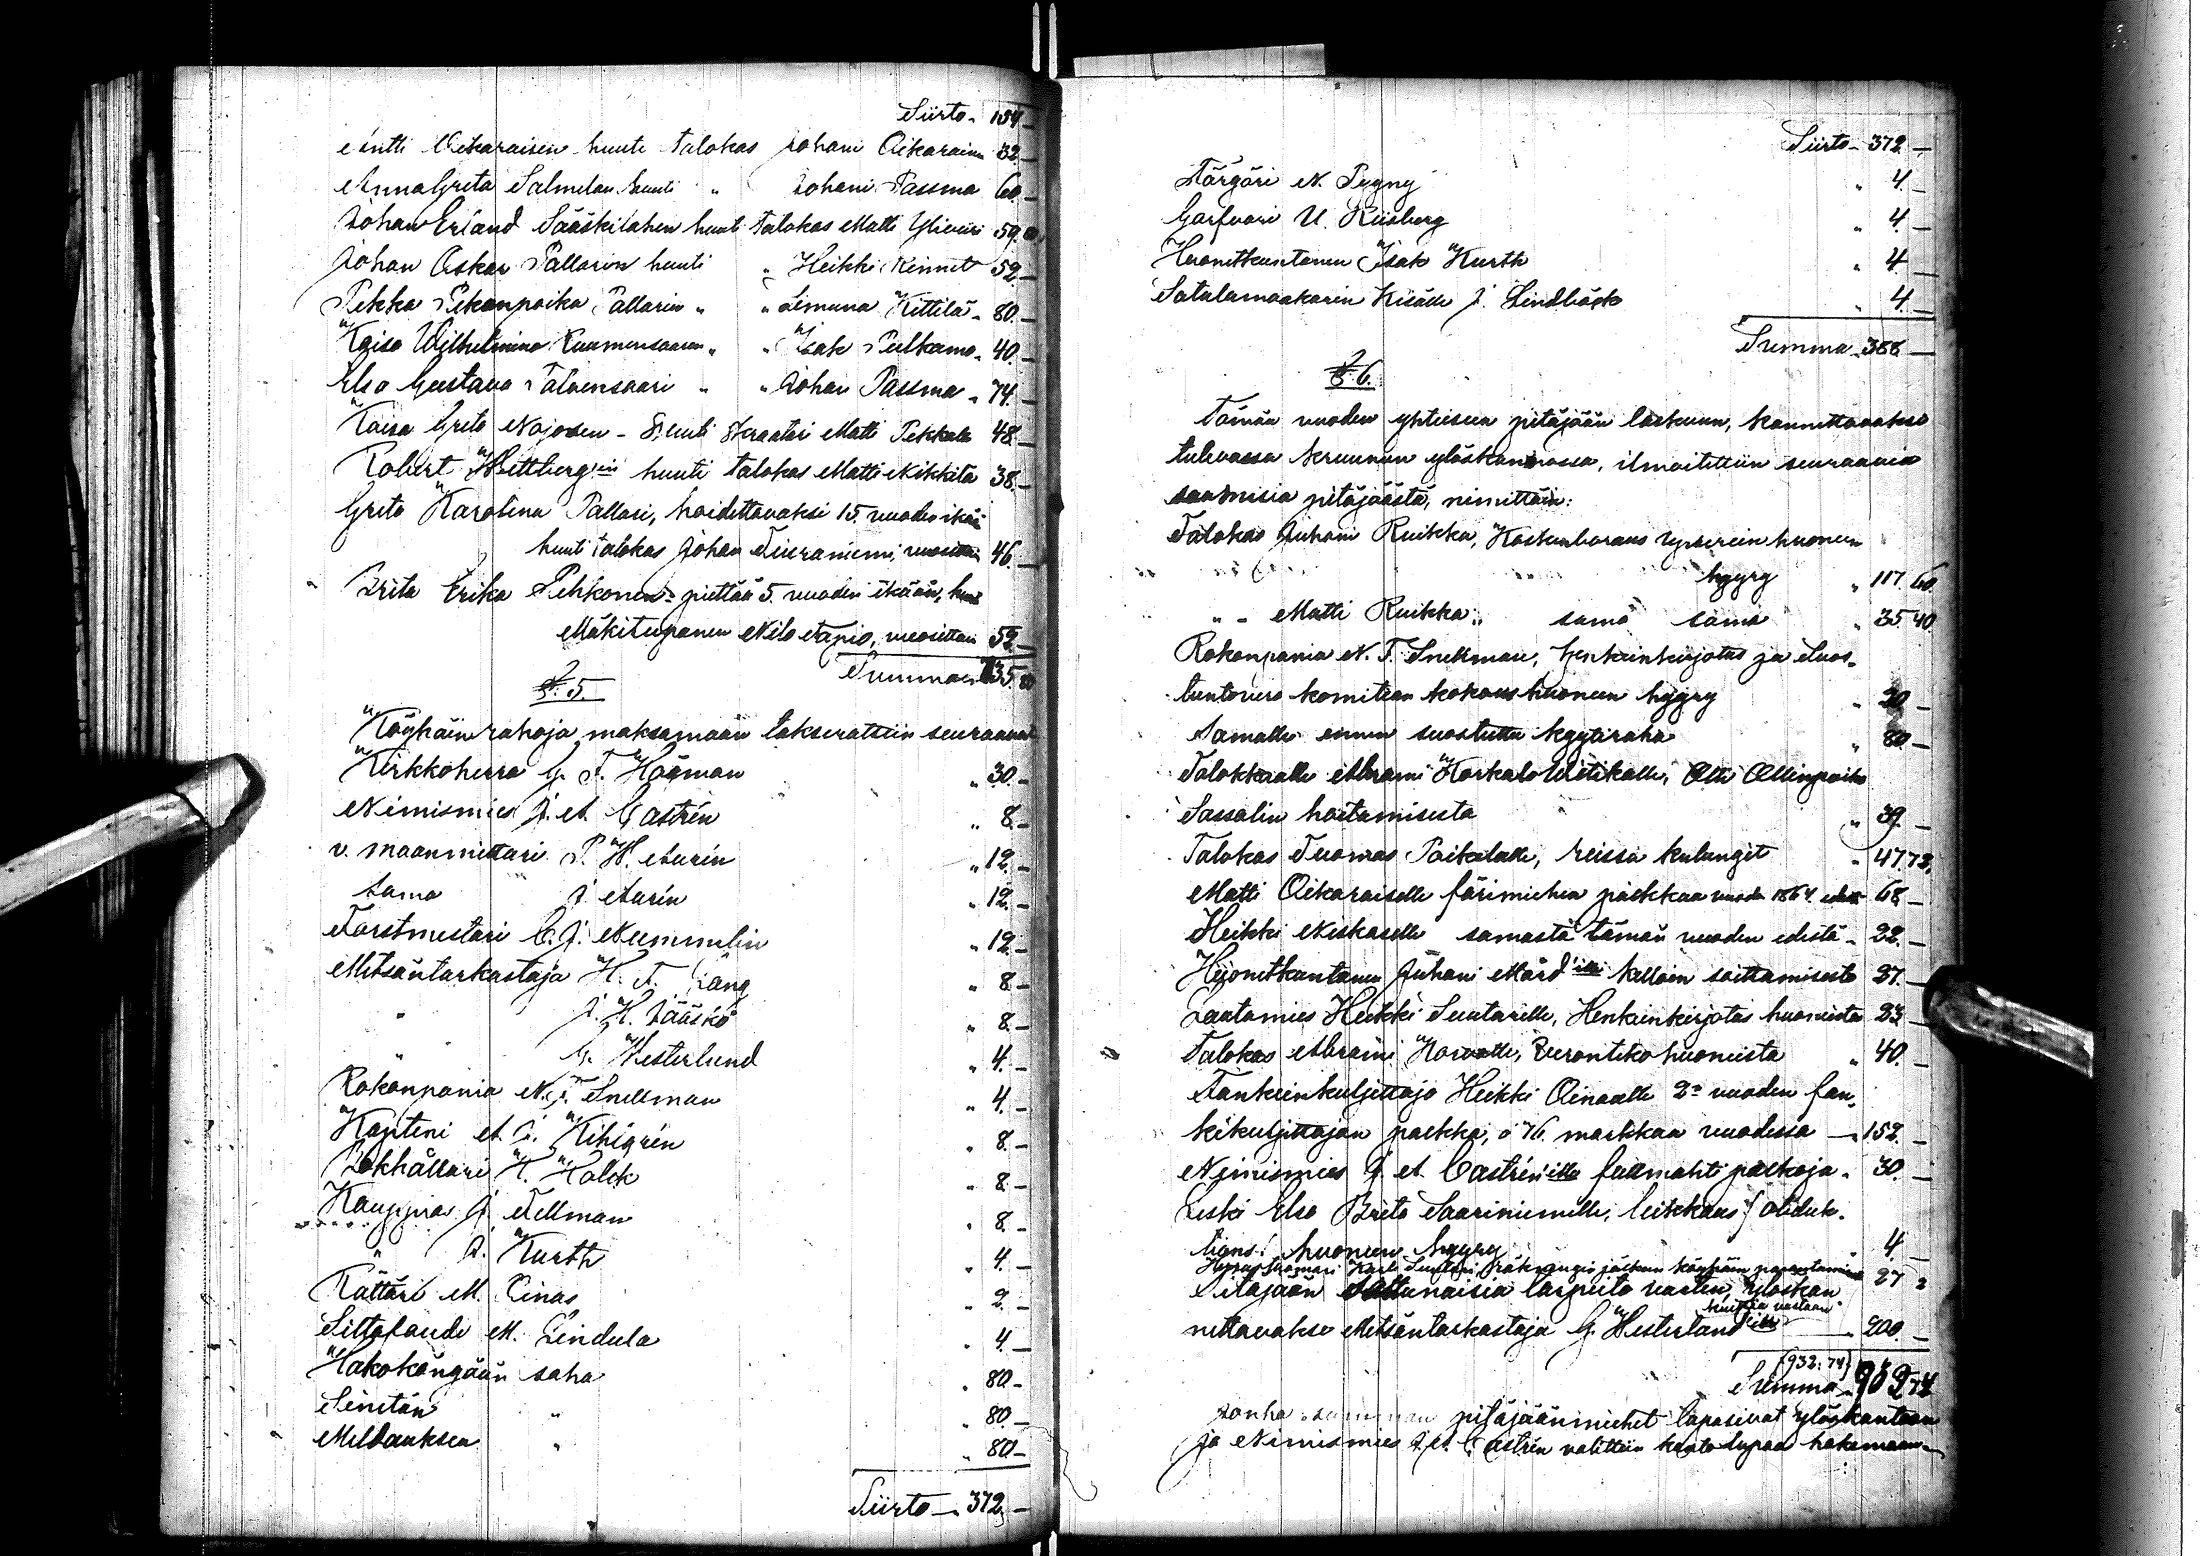 Siirto - 154 -
Antti Oikaraisen huuti talokas Johani Oikarainen 32. -
Anna Greta Salmelan huuti " Johani Passma 60. -
Johan Erland Sääskilahen huuti talokas Matti Yliveiri 59.
Johan Oskar Pallarin huuti " Heikki Kinnet 52. -
Pekka Pekanpoika Pallarin " " Kittilä - 80. -
Kaisa Wilhelmina Luumensaaren " " Isak Pulkamo - 40. -
Elsa Gustava Palvensaari " " Johan Passma " 74. -
Kaisa Greta Nojosen - Huuti Matti Pekkala 48. -
Robert Wettberg'in huuti talokas Matti Nikkilä 38. -
Greta Karolina Pallari, hoidettavaksi 15. vuoden ikää
huuti talokas Johan Tiuraniemi, vuosittain 46. -
Brita Erika Pehkonen - piettää 5. vuoden ikään,
Mäkitupanen Nilo Tapio, vuosittain 52. -
Summa
§. 5.
Köyhäin rahoja maksamaan takserattiin seuraavat
Kirkkoherra G. F. Högman " 30. -
Nimismies J. A. Castrén " 8. -
v. maanmittari P. W. Aurén " 12. -
sama J. Aurén " 12. -
Forstmestari C. J. Nummelin " 12. -
Metsäntarkastaja H. F. Lång " 8 -
" J. H. Jääskö " 8. -
" G. Westerlund " 4. -
Rokonpania N. F. Snellman " 4. -
Kapteni A. G. Kihlgrén " 8. -
Bokhållari H. Holck " 8. -
Kauppias J. Fellman " 8. -
" J. Kurth " 4. -
Rättäri M. Einas " 2. -
Siltafaudi M. Lindula " 4. -
Hakokängään saha " 80 -
Sinetän " " 80. -
Meltauksen " " 80 -
Siirto - 372. -
Siirto - 372. -
Färgäri N. Pygny " 4. -
Garfvari U. Riisberg " 4 -
Huonetkuntanen Isak Kurth " 4 -
Satulamaakarin Kisälle J. Lindbäck " 4 -
Summa - 388 -
§. 6.
Tämän vuoden yhteiseen pitäjään laskuun, kannettavaksi
tulevassa kruunun ylöskannossa, ilmoitettiin seuraavia
saamisia pitäjäästä, nimittäin:
Talokas Juhani Ruikka, huoneen
" " hyyry " 117. 60
" - Matti Ruikka " sama sama " 35 40
Rokonpania N. F. Snellman, henkeinkirjotus ja Suos-
tuntovero komitean kokoushuoneen hyyry " 20 -
Samalle ennen suostuttu kyytiraha " 80 -
Talokkaalle Abrami Korkalo Olli Ollinpoika
Sassalin hoitamisesta " 39. -
Talokas Tuomas Paikalalle, reissu kulungit " 47. 72.
Matti Oikaraiselle färimiehen palkkaa vuoden 1864 edestä 68 -
Heikki Niskaselle samasta tämän vuoden edestä - 22. -
Hyonetkuntanen Juhani Mård'ille kelloin soittamisesta 27. -
Lautamies Heikki Suutarille, Henkeinkirjotus huoneista 23 -
Talokas Abrami Horvalle, huoneista " 40. -
Fankeinkuljettaja Heikki Oinaalle 2:n vuoden fan-
kikuljettajan palkka, à 76 markkaa vuodessa - 152. -
Nimismies J. A. Castrén'ille fullmahti palkoja - 30. -
Leski Elsa Brita Saariniemille, leikkaus /
huoneen hyyry " 4 -
Karl Suutari, räkningin jälkeen köyhäin 27 2
Pitäjään sattunaisia tarpeita varten, ylöskan
nettavaksi Metsäntarkastaja G. Westerlund'ille kuittia vastaan - 200. -
(932: 74)
Summa - 932 74
Jonka summan pitäjäänmiehet lupasivat ylöskantaan
ja Nimismies J. A. Castrén valittiin kantolupaa hakemaan -